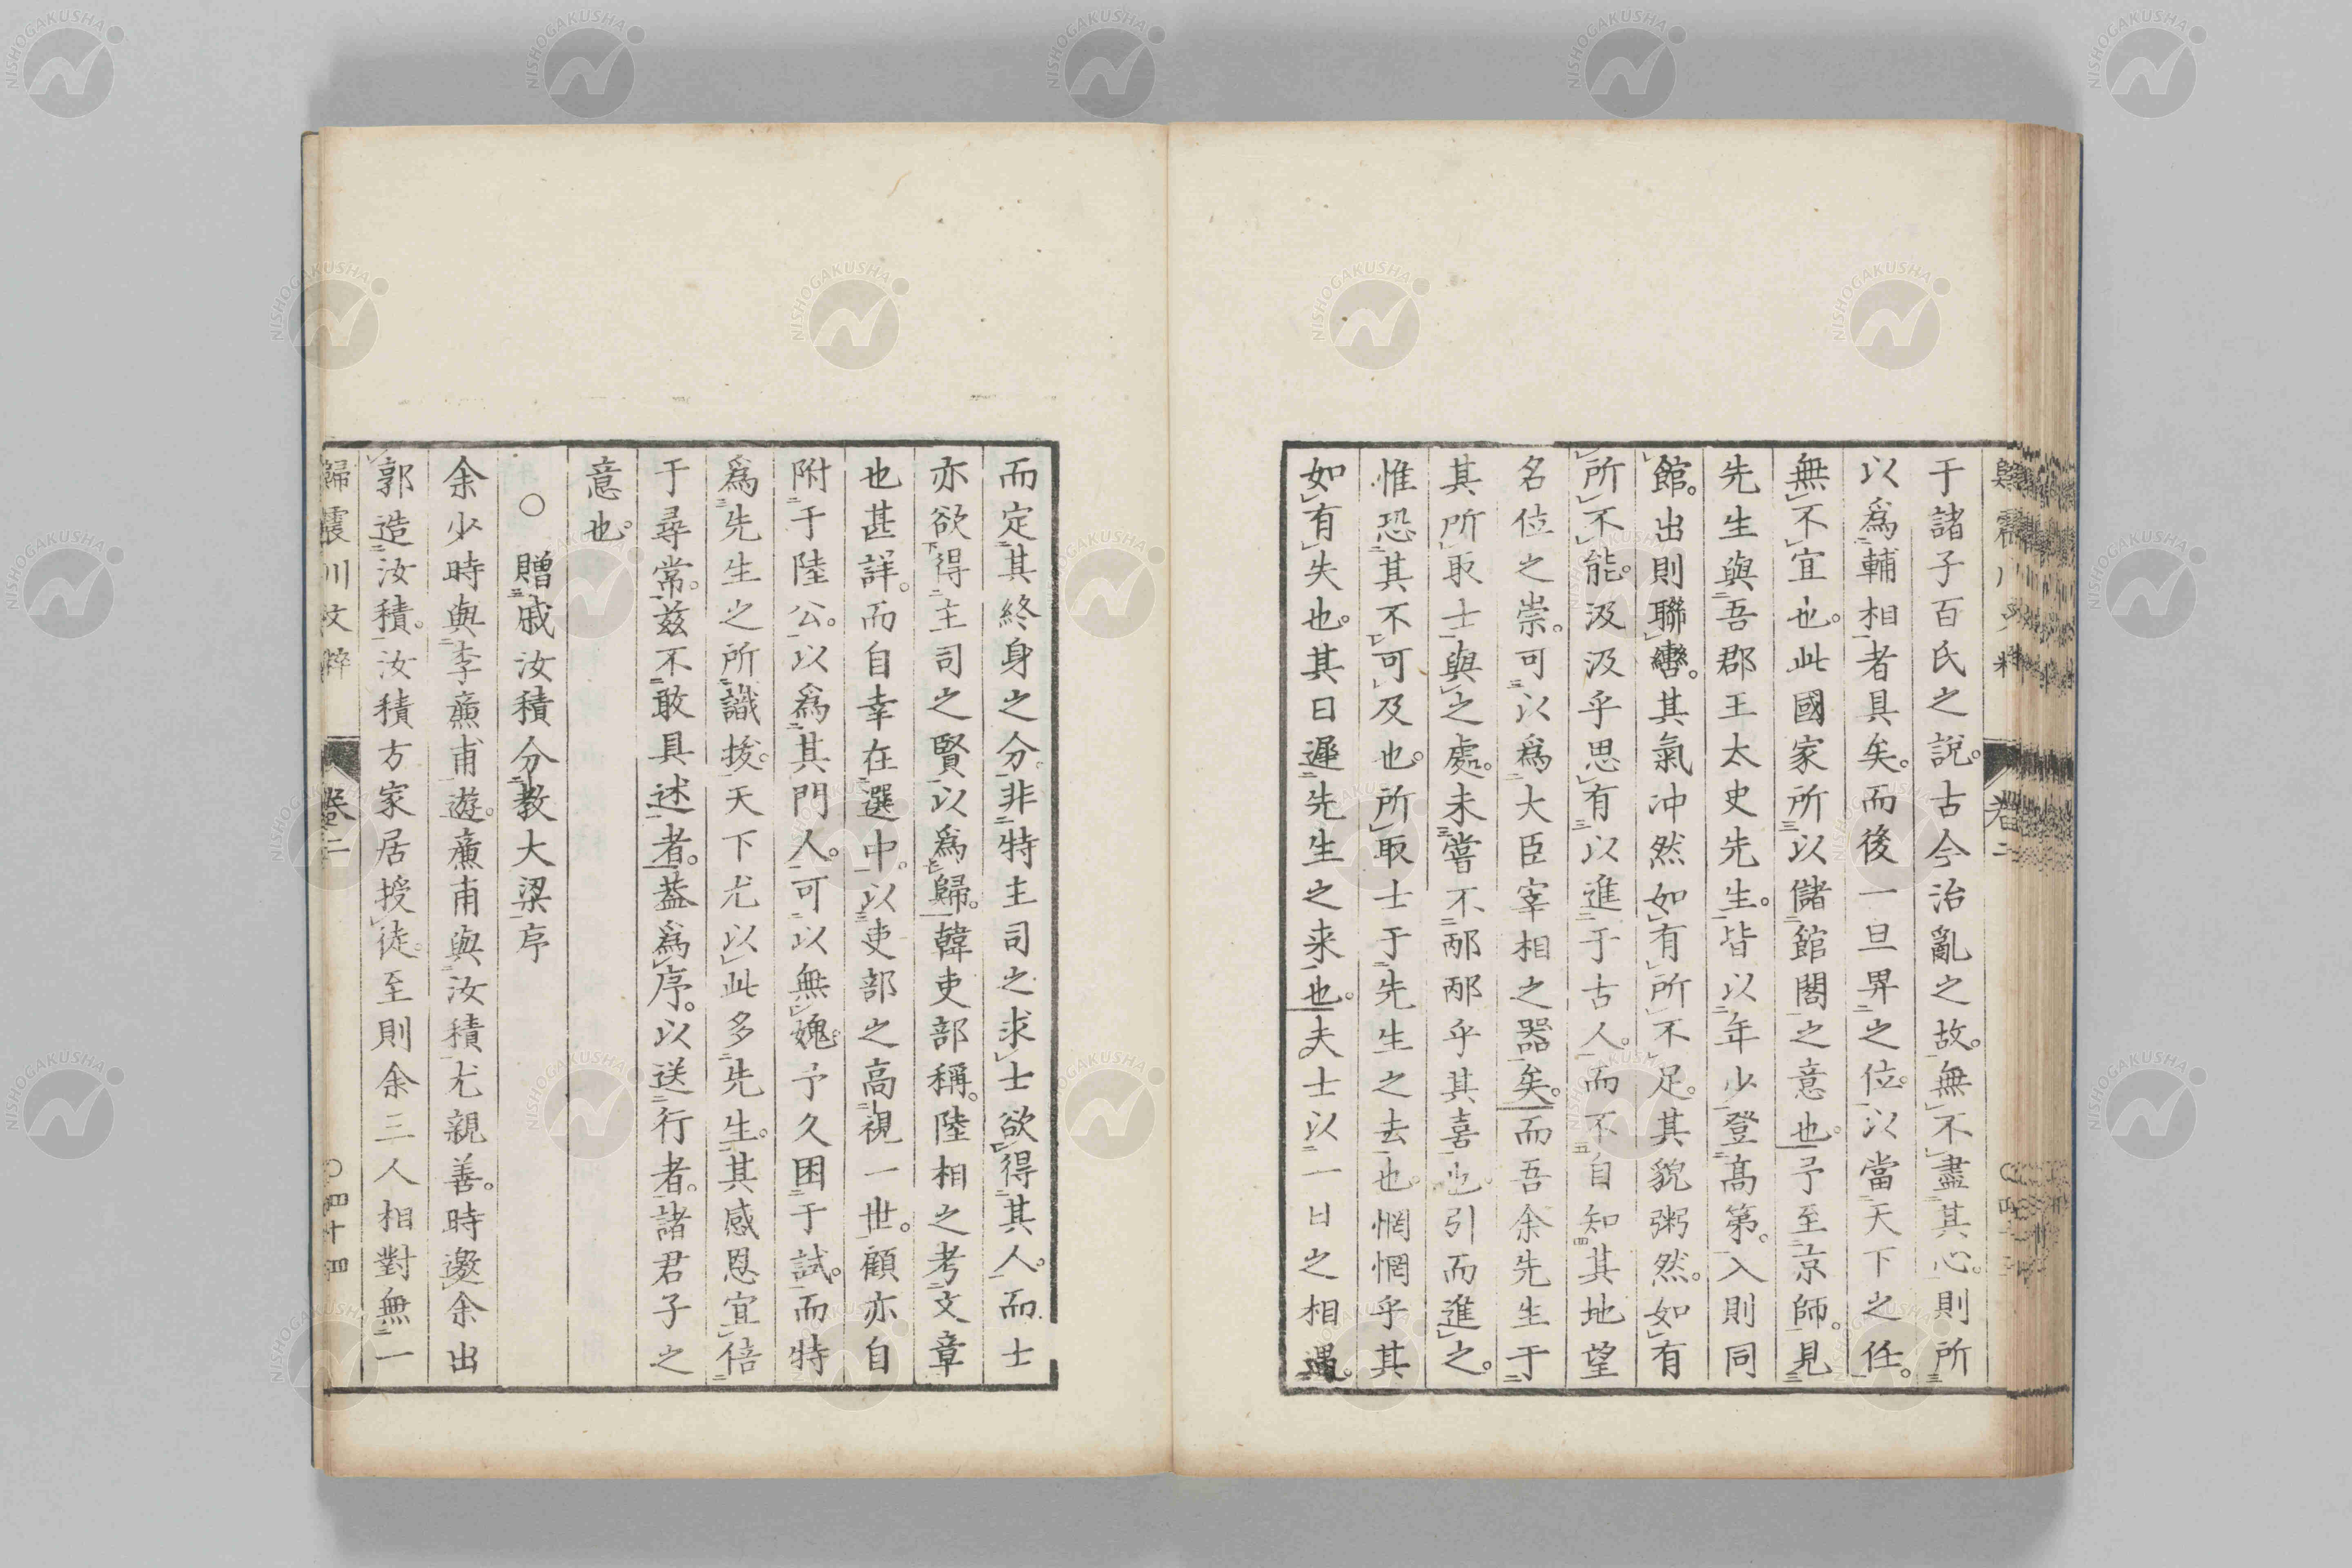 于諸子百氏之說。古今治亂之故。無不盡其心。則所
以爲輔相者具矣。而後一旦畀之位。以當天下之任。
無不宜也。此國家所以儲館閣之意也。予至京師。見
先生與吾郡王太史先生。皆以年少登高第。入則同
館。出則聯轡。其氣冲然如有所不足。其貌粥然。如有
所不能。汲汲乎思有以進于古人。而不自知其地望
名位之崇。可以爲大臣宰相之器矣。而吾余先生于
其所取士與之處。未嘗不邴邴乎其喜也。引而進之。
惟恐其不可及也。所取士于先生之去也。惘惘乎其
如有失也。其日遲先生之来也。夫士以一日之相遇。
而定其終身之分。非特主司之求士欲得其人。而士
亦欲得主司之賢以爲歸。韓吏部稱。陸相之考文章
也甚詳。而自幸在選中。以吏部之高視一世。顧亦自
附于陸公。以爲其門人。可以無媿。予久困于試。而特
爲先生之所識拔。天下尤以此多先生。其感恩宜倍
于尋常。兹不敢具述者。葢爲序。以送行者。諸君子之
意也。
○贈戚汝積分教大梁序
余少時與李㢘甫遊。㢘甫與汝積尤親善。時邀余出
郭造汝積。汝積方家居授徒。至則余三人相對無一
歸震川文粹 卷二 ○四十四
NISHOGAKUSHA